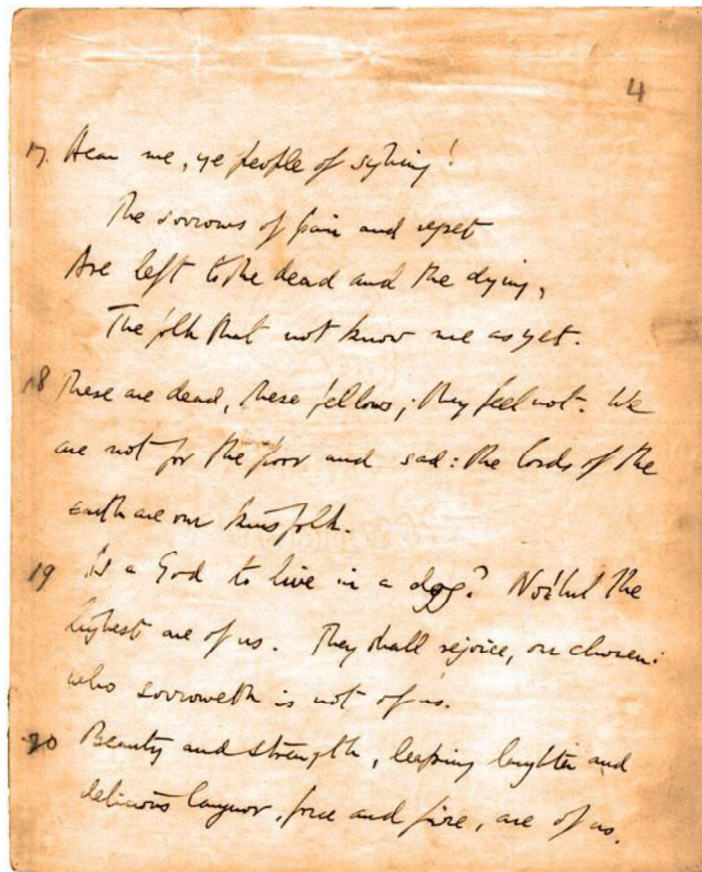 4
17. Hear me, ye people of sighing!
The sorrows of pain and regret
Are left to the dead and the dying,
The folk that not know me as yet.
18 These are dead, these fellows; they feel not. We
are not for the poor and sad: the lords of the
earth are our kinsfolk.
19 Is a God to live in a dog? No! but the
highest are of us. They shall rejoice, our chosen:
who sorroweth is not of us.
20 Beauty and strength, leaping laughter and
delicious languor, force and fire, are of us.